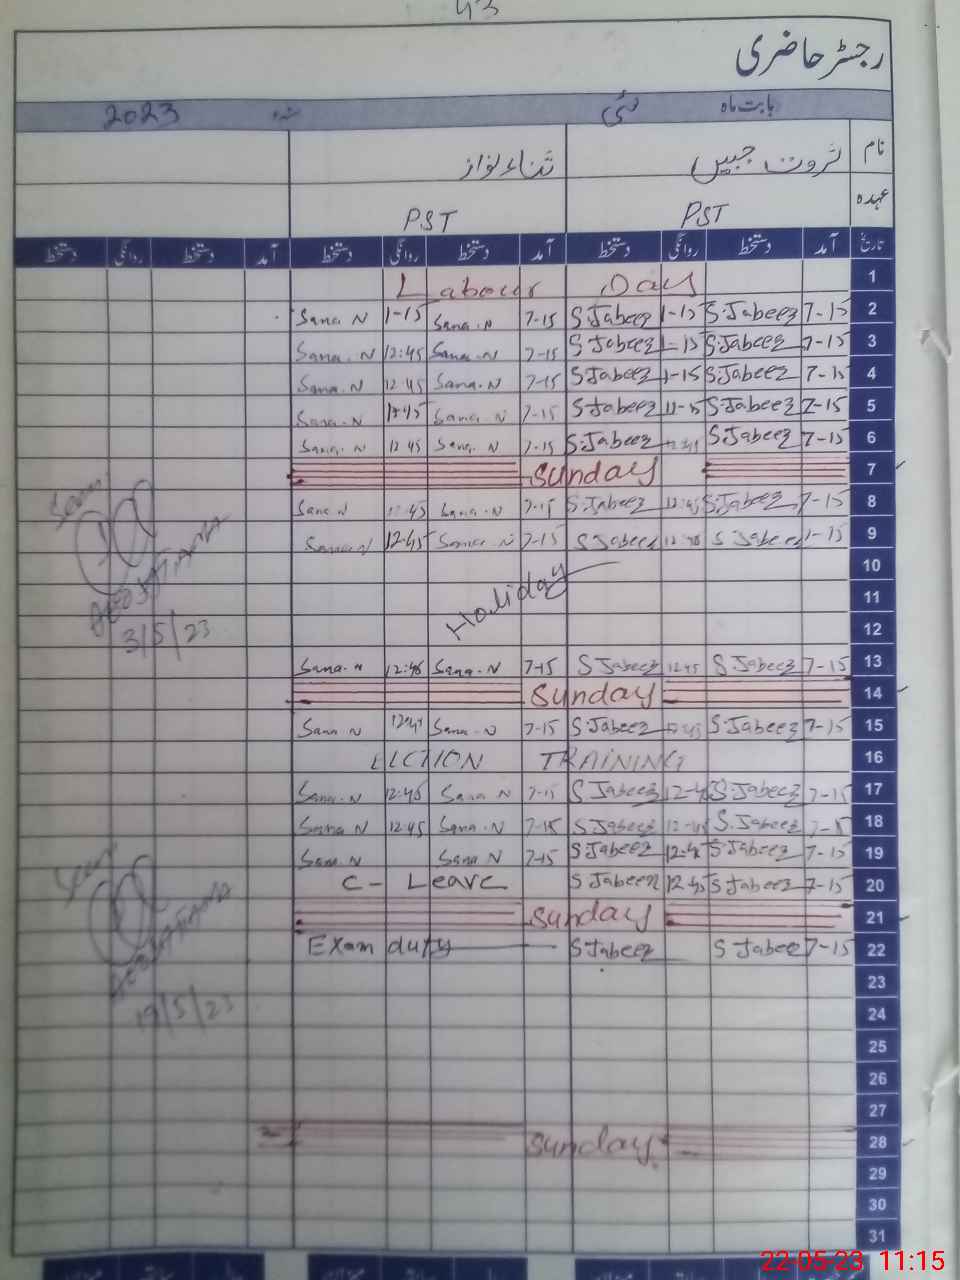 43
رجسٹر حاضری
بابت ماہ مئی 2023
نام ثروت جبیں ثناء نواز
عہدہ PST PST
تاریخ آمد دستخط روانگی دستخط آمد دستخط روانگی دستخط آمد دستخط روانگی دستخط
1 Labour Day
2 7-15 S.Jabeez 1-15 S.Jabeez 7-15 Sana.N 1-15 Sana N
3 7-15 S.Jabeez 1-15 S.Jabeez 7-15 Sana.N 12:45 Sana.N
4 7-15 S.Jabeez 1-15 S.Jabeez 7-15 Sana.N 12:45 Sana.N
5 7-15 S.Jabeez 11-15 S.Jabeez 7-15 Sana.N Sana.N
6 7-15 S.Jabeez S.Jabeez 7-15 Sana.N 12 45 Sana.N
7 Sunday
8 7-15 S.Jabeez 12:45 S.Jabeez 7-15 Sana.N 12:45 Sana N
9 S Jabeez S Jabeez 7-15 Sana.N 12:45 Sana N
10
11 Holiday
12
13 7-15 S.Jabeez 12 45 S Jabeez 7-15 Sana.N 12:45 Sana.N
14 Sunday
15 7-15 S.Jabeez S.Jabeez 7-15 Sana.N Sana N
16 ELCTION TRAINING
17 7-15 S.Jabeez S Jabeez 7-15 Sana N 12:45 Sana.N
18 S.Jabeez S Jabeez 7-15 Sana.N 12:45 Sana N
19 7-15 S Jabeez S Jabeez 7-15 Sana N Sana.N
20 7-15 S Jabeez 12 45 S Jabeen C- Leave
21 Sunday
22 7-15 S Jabeez S Jabeez Exam duty
23
24
25
26
27
28 Sunday
29
30
31
Seen
3/5/23
Seen
19/5/23
22-05-23 11:15